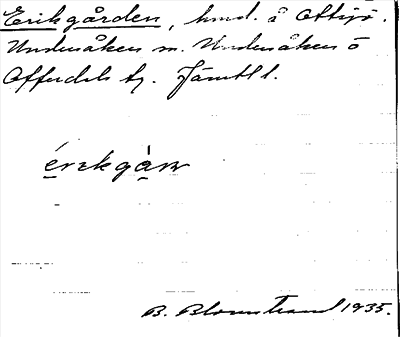 Erikgården, hmd. å Ottsjö.
Undersåkers sn. Undersåkers o
Offerdals tg. Jämtl l.
érɪkgà̱ɳ
B. Blomstrand 1935.